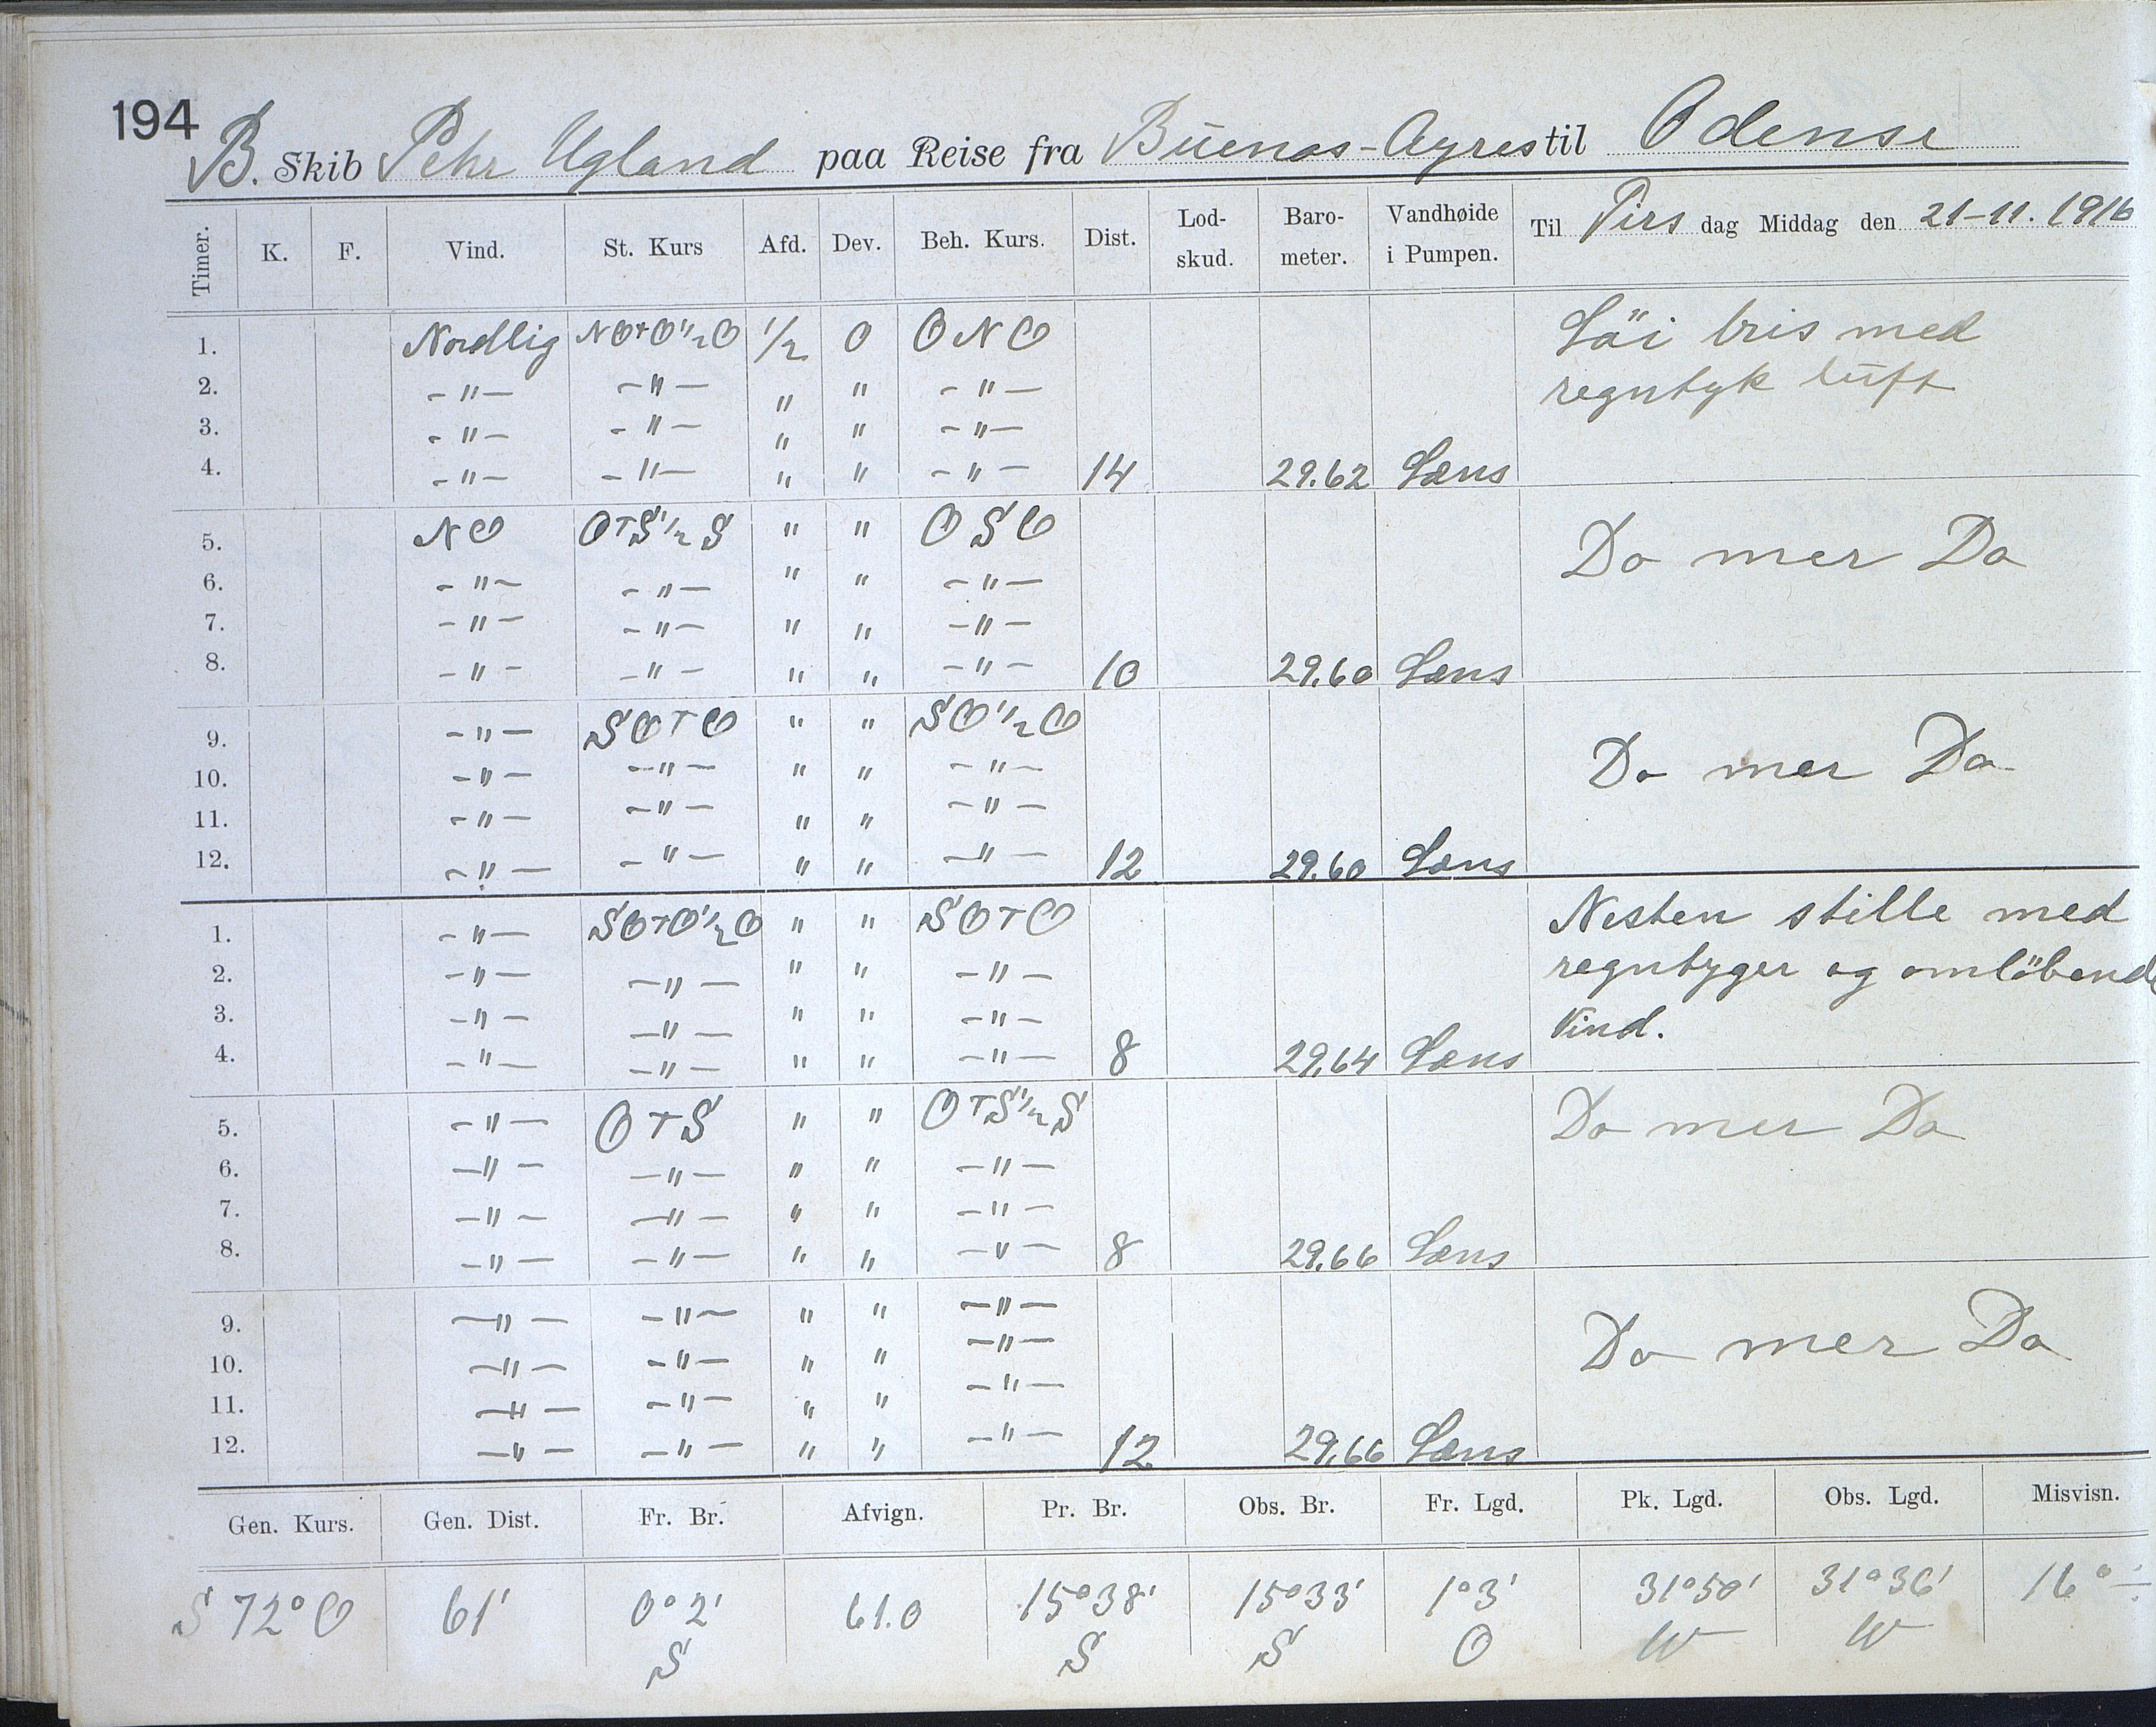 194
B. Skib Pehr Ugland paa Reise fra Buenos-Ayres til Odense
Timer. K. F. Vind. St. Kurs Afd. Dev. Beh. Kurs. Dist. Lod-skud. Baro-meter. Vandhøide i Pumpen. Til Tirs dag Middag den 21-11. 1916
1. Nordlig NOtO½O ½ 0 ONO Löi bris med
2. -"- -"- " " -"- regntyk luft
3. -"- -"- " " -"-
4. -"- -"- " " -"- 14 29.62 Læns
5. NO OTS½S " " OSO Do mer Do
6. -"- -"- " " -"-
7. -"- -"- " " -"-
8. -"- -"- " " -"- 10 29.60 Læns
9. -"- SOTO " " SO½O Do mer Do
10. -"- -"- " " -"-
11. -"- -"- " " -"-
12. -"- -"- " " -"- 12 29.60 Læns
1. -"- SOTO½O " " SOTO Nesten stille med
2. -"- -"- " " -"- regnbyger og omlöbende
3. -"- -"- " " -"- Vind.
4. -"- -"- " " -"- 8 29.64 Læns
5. -"- OTS " " OTS½S Do mer Do
6. -"- -"- " " -"-
7. -"- -"- " " -"-
8. -"- -"- " " -"- 8 29.66 Læns
9. -"- -"- " " -"- Do mer Do
10. -"- -"- " " -"-
11. -"- -"- " " -"-
12. -"- -"- " " -"- 12 29.66 Læns
Gen. Kurs. Gen. Dist. Fr. Br. Afvign. Pr. Br. Obs. Br. Fr. Lgd. Pk. Lgd. Obs. Lgd. Misvisn.
S 72° O 61' 0° 2' 61.0 15° 38' 15° 33' 1° 3' 31° 50' 31° 36' 16° ÷
S S S O W W